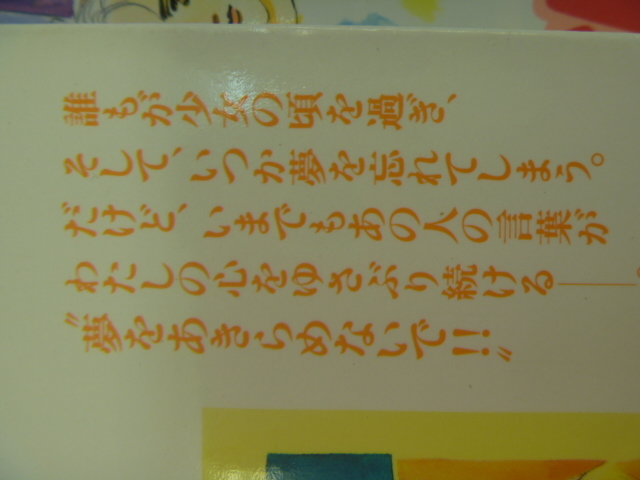 誰もが少女の頃を過ぎ、
そして、いつか夢を忘れてしまう。
だけど、いまでもあの人の言葉が
わたしの心をゆさぶり続ける――。
〝夢をあきらめないで!!〟